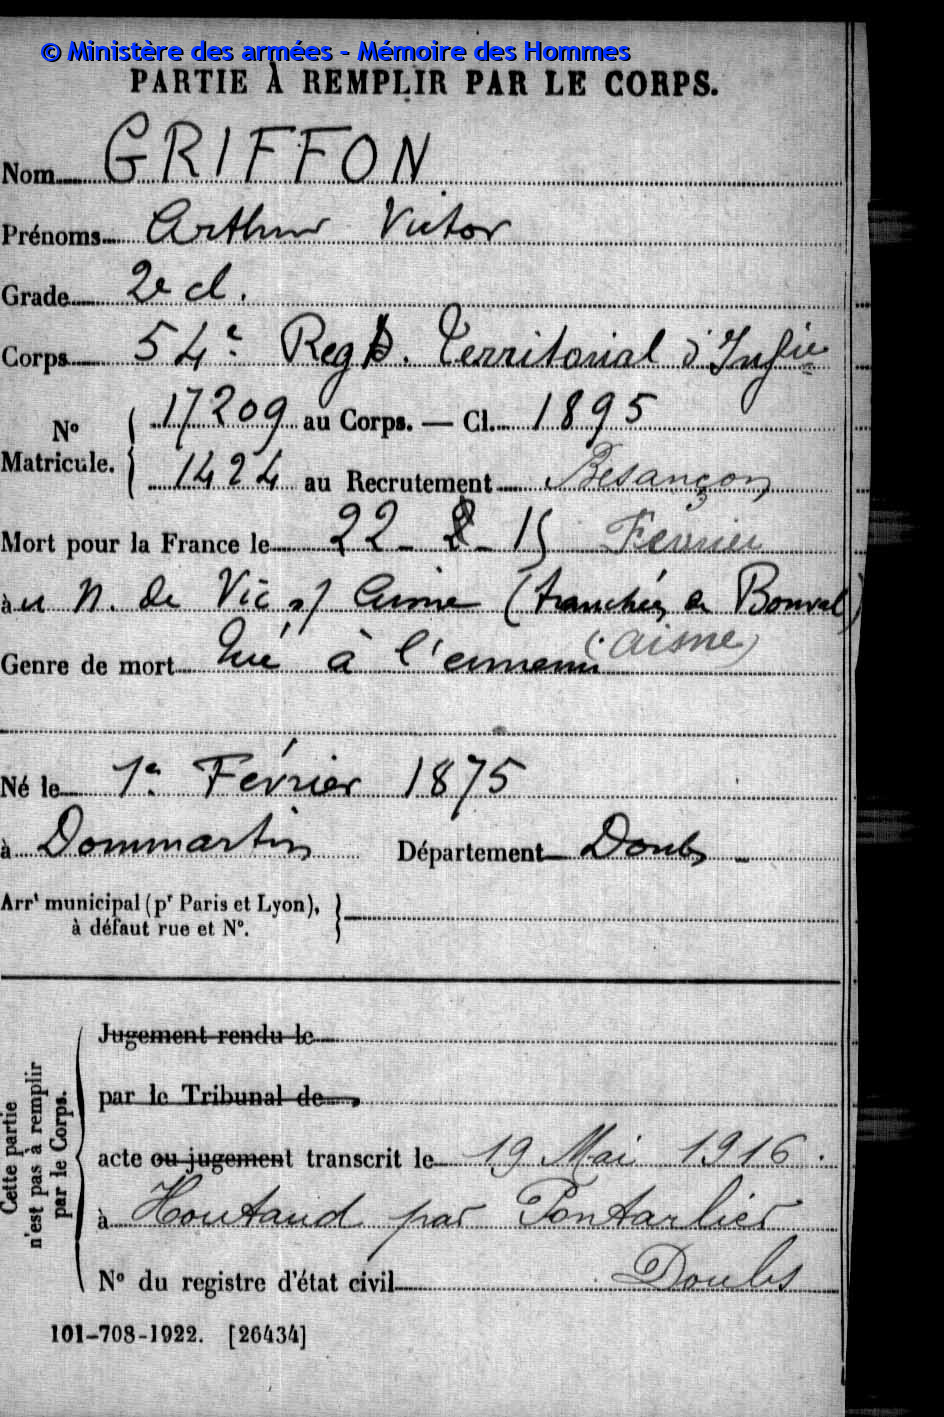 © Ministère des armées - Mémoire des Hommes
PARTIE À REMPLIR PAR LE CORPS.
Nom GRIFFON
Prénoms Arthur Victor
Grade 2e cl.
Corps 54e Regt. Territorial d'Infie
N° Matricule. 17209 au Corps. — Cl. 1895
1424 au Recrutement Besançon
Mort pour la France le 22 - 2 - 15 Février
à u N. de Vic s/ Aisne (tranchées de Bonval)
(Aisne)
Genre de mort tué à l'ennemi
Né le 1er Février 1875
à Dommartin Département Doubs
Arrt municipal (pr Paris et Lyon),
à défaut rue et N°.
Cette partie n'est pas à remplir par le Corps.
Jugement rendu le
par le Tribunal de
acte ou jugement transcrit le 19 Mai 1916.
à Houtaud par Pontarlier
Doubs
N° du registre d'état civil
101-708-1922. [26434]